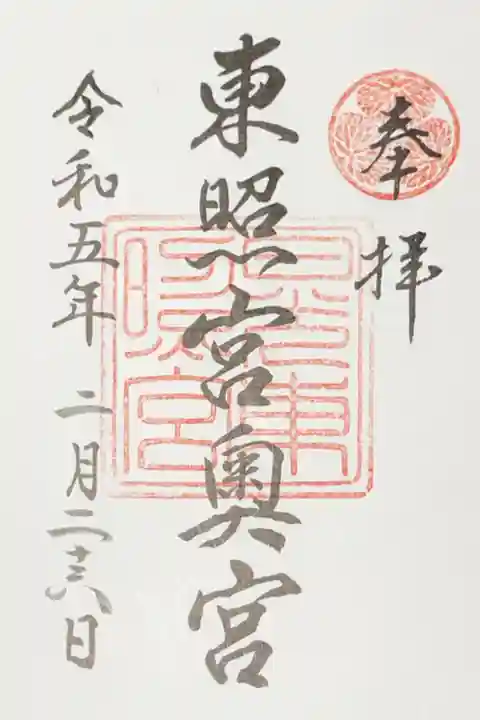 奉拝
東照宮奥宮
令和五年 二月二十六日